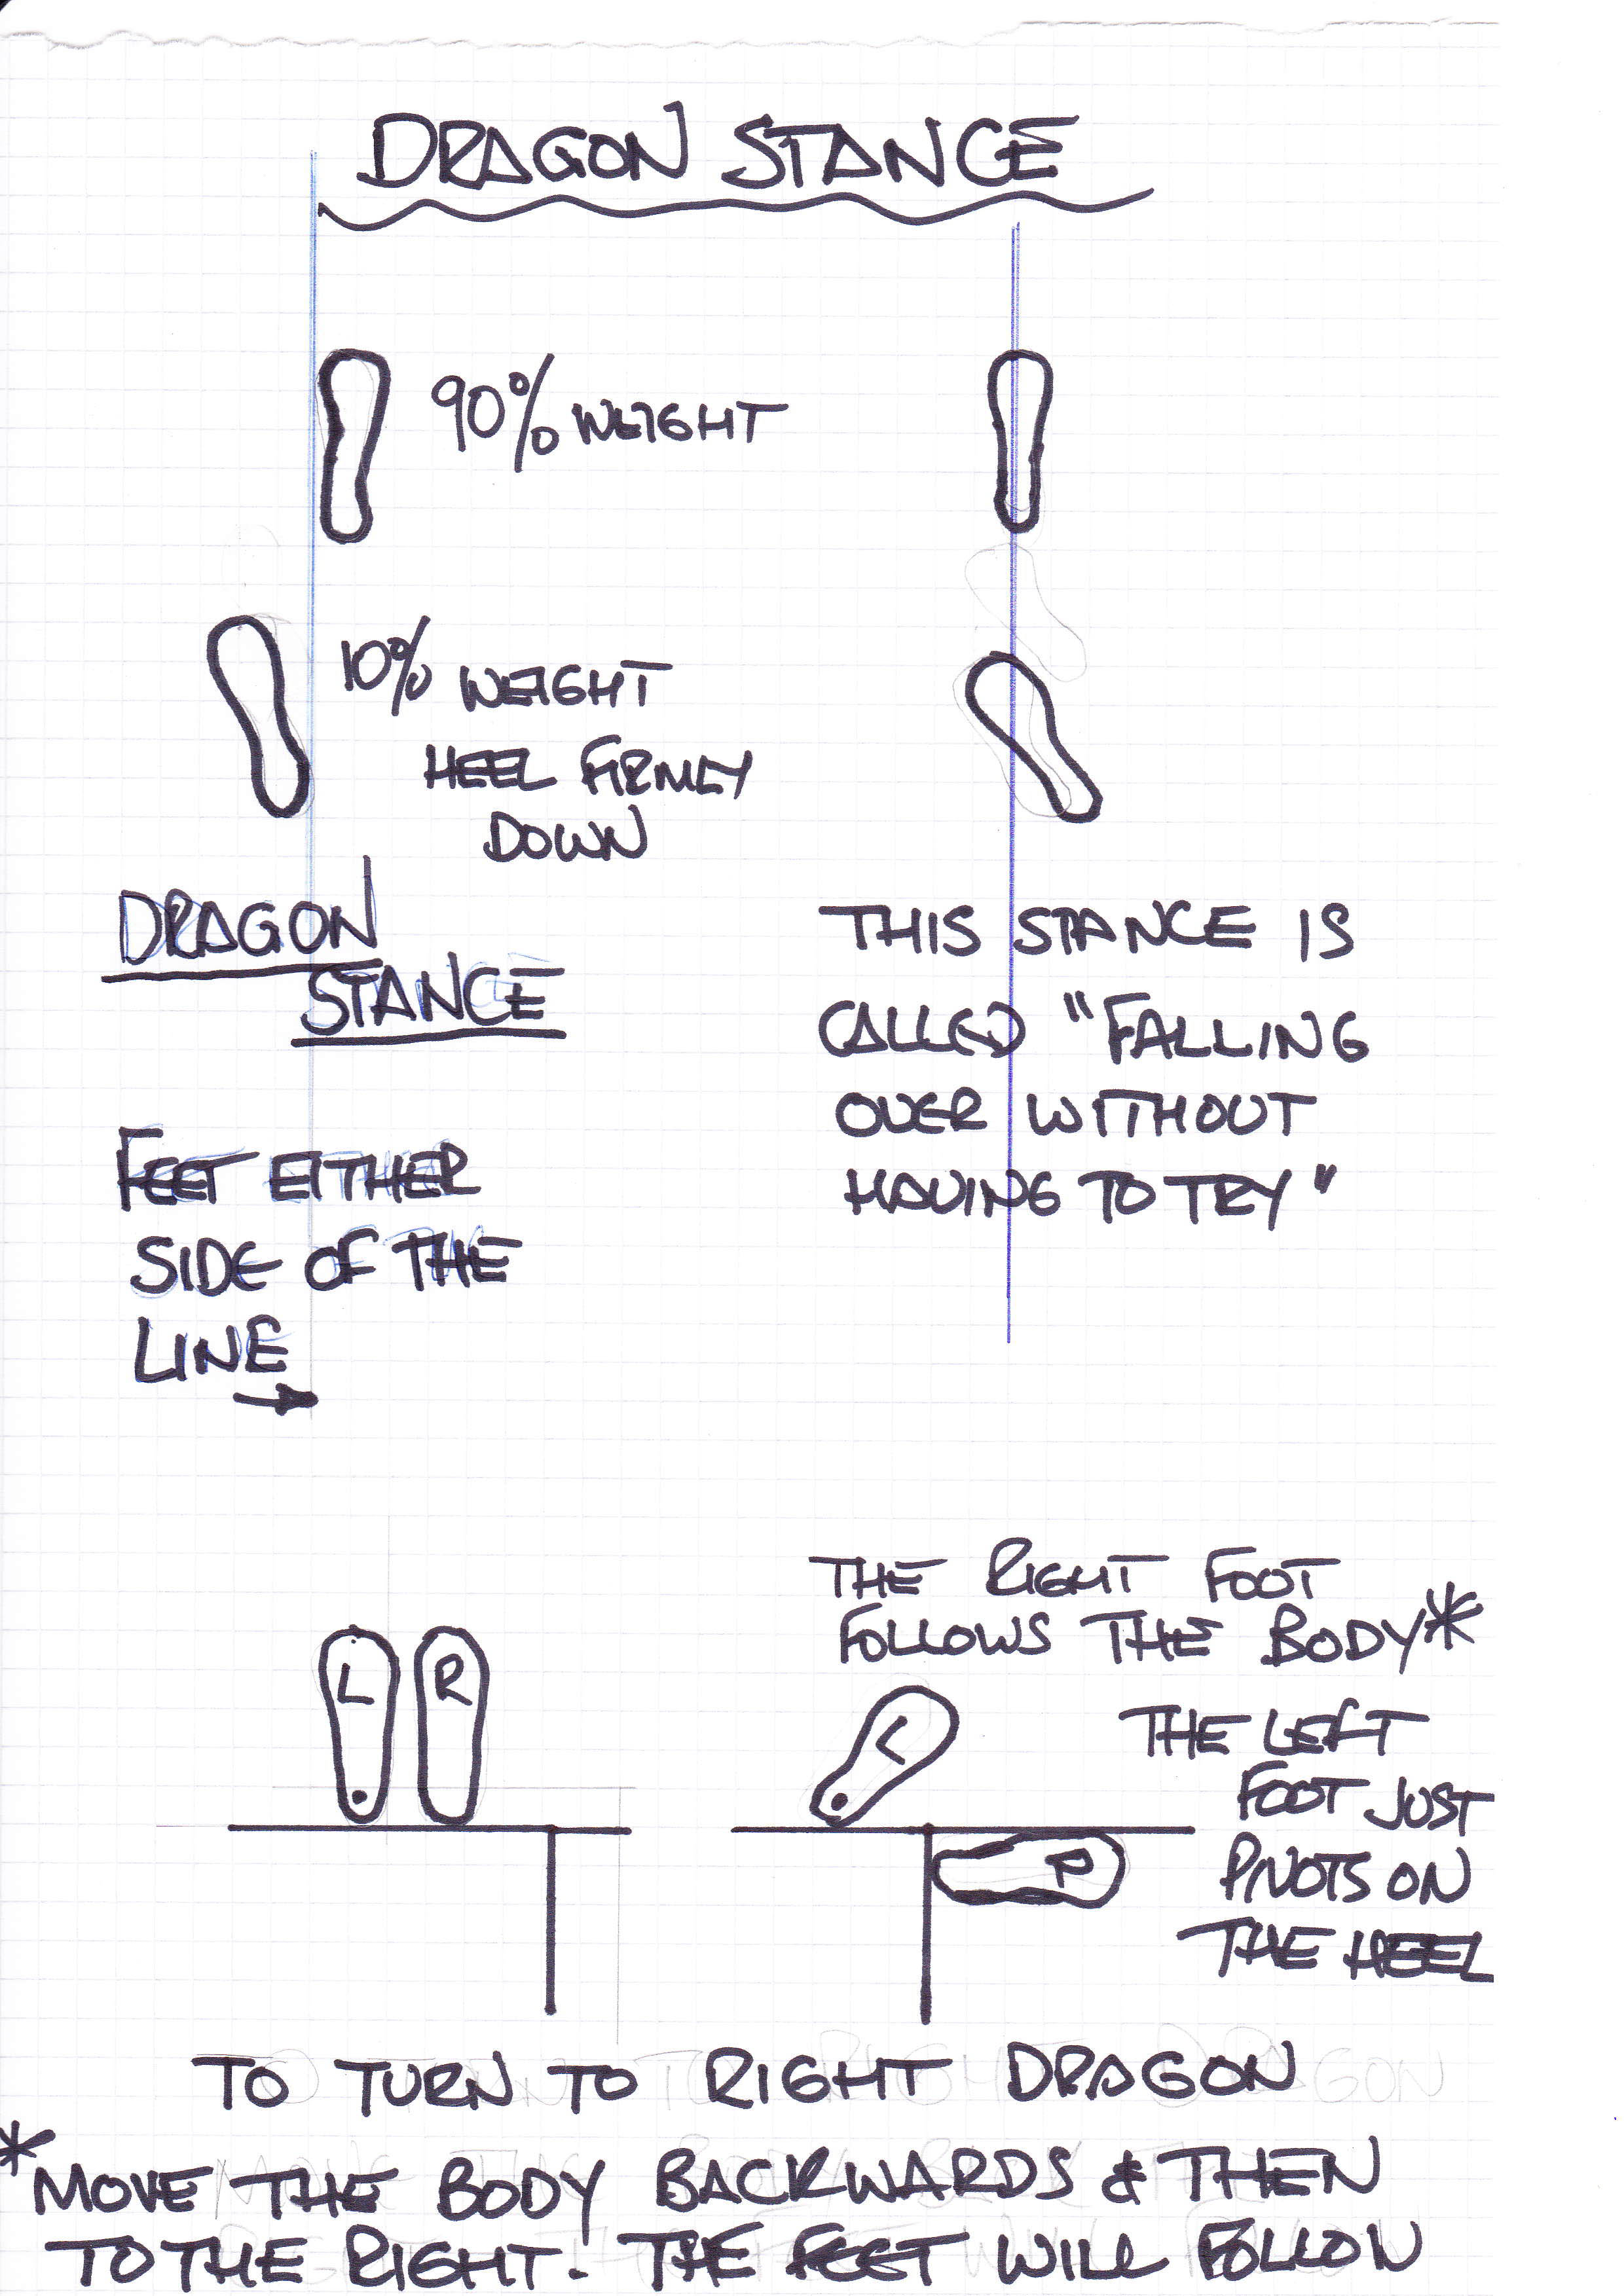 DRAGON STANCE
90% WEIGHT
10% WEIGHT
HEEL FIRMLY
DOWN
DRAGON
STANCE
FEET EITHER
SIDE OF THE
LINE
THIS STANCE IS
CALLED "FALLING
OVER WITHOUT
HAVING TO TRY"
L R
THE RIGHT FOOT
FOLLOWS THE BODY*
L
THE LEFT
FOOT JUST
PIVOTS ON
THE HEEL
R
TO TURN TO RIGHT DRAGON
*MOVE THE BODY BACKWARDS & THEN
TO THE RIGHT. THE FEET WILL FOLLOW